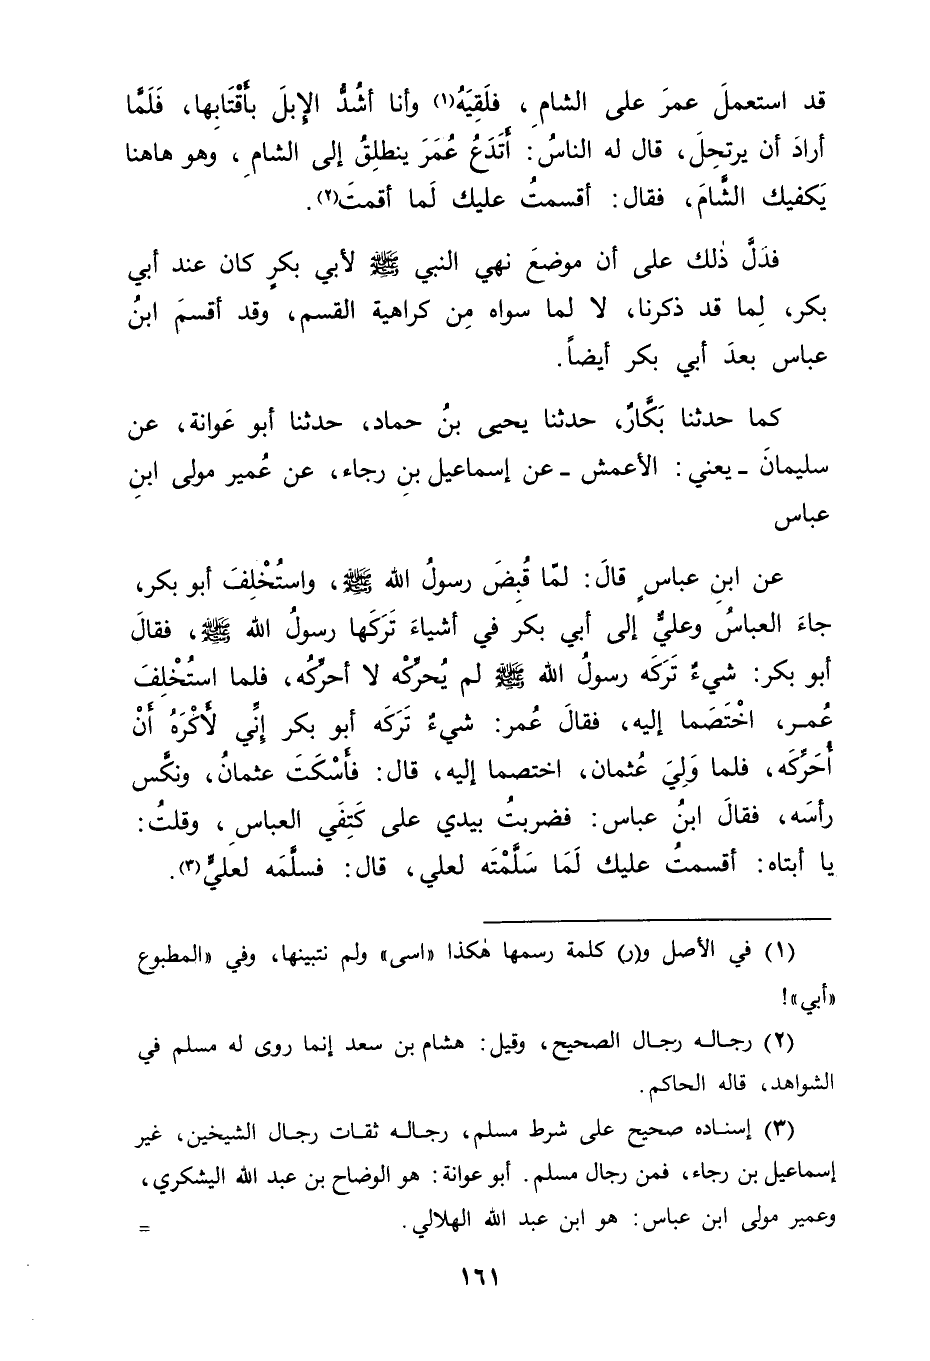 قد استعملَ عمرَ على الشامِ، فلَقِيَهُ(١) وأنا أشُدُّ الإِبلَ بأَقْتَابِها، فَلَمَّا
أرادَ أن يرتحِلَ، قال له الناسُ: أَتَدَعُ عُمَرَ ينطلِقُ إلى الشامِ، وهو هاهنا
يَكفيك الشَّامَ، فقال: أقسمتُ عليك لَما أقمتَ(٢).
فدَلَّ ذٰلك على أن موضعَ نهي النبي ﷺ لأبي بكرٍ كان عند أبي
بكر، لِما قد ذكرنا، لا لما سواه مِن كراهية القسم، وقد أقسمَ ابنُ
عباس بعدَ أبي بكر أيضاً.
كما حدثنا بَكَّارٌ، حدثنا يحيى بنُ حماد، حدثنا أبو عَوانة، عن
سليمانَ ـ يعني: الأعمش ـ عن إسماعيل بنِ رجاء، عن عُمير مولى ابنِ
عباس
عن ابنِ عباسٍ قالَ: لمّا قُبِضَ رسولُ الله ﷺ، واستُخْلِفَ أبو بكر،
جاءَ العباسُ وعليٌّ إلى أبي بكر في أشياءَ تَرَكَها رسولُ الله ﷺ، فقالَ
أبو بكر: شيءٌ تَرَكَه رسولُ الله ﷺ لم يُحرِّكْه لا أحرِّكُه، فلما استُخْلِفَ
عُمـر، اخْتَصَما إليه، فقالَ عُمر: شيءٌ تَرَكَه أبو بكر إنِّي لأَكْرَهُ أَنْ
أُحَرِّكَه، فلما وَلِيَ عُثمان، اختصما إليه، قال: فأَسْكَتَ عثمانُ، ونكَّس
رأسَه، فقالَ ابنُ عباس: فضربتُ بيدي على كَتِفَي العباسِ، وقلتُ:
يا أبتاه: أقسمتُ عليك لَمَا سَلَّمْتَه لعلي، قال: فسلَّمَه لعليٍّ(٣).
(١) في الأصل و(ر) كلمة رسمها هٰكذا «اسى» ولم نتبينها، وفي «المطبوع
«أبي»!
(٢) رجـالـه رجـال الصحيح، وقيل: هشام بن سعد إنما روى له مسلم في
الشواهد، قاله الحاكم.
(٣) إسنـاده صحيح على شرط مسلم، رجـالـه ثقـات رجـال الشيخين، غير
إسماعيل بن رجاء، فمن رجال مسلم. أبو عوانة: هو الوضاح بن عبد الله اليشكري،
وعمير مولى ابن عباس: هو ابن عبد الله الهلالي. =
١٦١